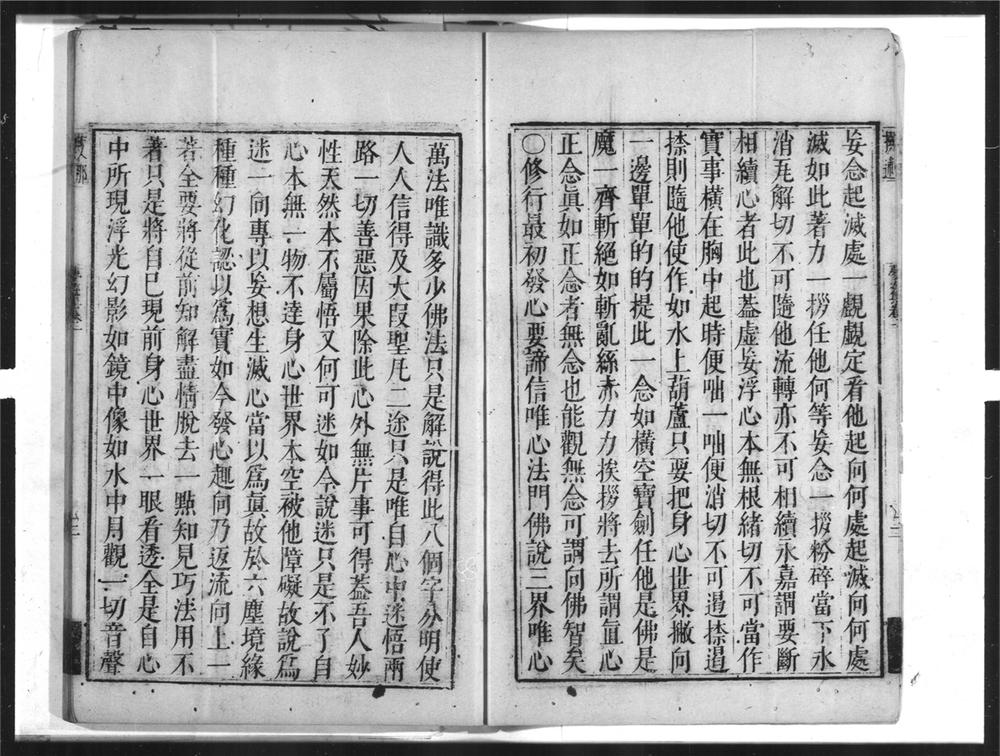 妄念起滅處一覷覷定看他起向何處起滅向何處
滅如此著力一拶任他何等妄念一拶粉碎當下氷
消瓦解切不可隨他流轉亦不可相續永嘉謂要斷
相續心者此也葢虛妄浮心本無根緒切不可當作
實事橫在胸中起時便咄一咄便消切不可遏捺遏
捺則隨他使作如水上葫蘆只要把身心世界撇向
一邊單單的的提此一念如橫空寶劍任他是佛是
魔一齊斬絕如斬亂絲赤力力挨拶將去所謂直心
正念眞如正念者無念也能觀無念可謂向佛智矣
○修行最初發心要諦信唯心法門佛說三界唯心
萬法唯識多少佛法只是解說得此八個字分明使
人人信得及大叚聖凡二途只是唯自心中迷悟兩
路一切善惡因果除此心外無片事可得葢吾人妙
性天然本不屬悟又何可迷如今說迷只是不了自
心本無一物不達身心世界本空被他障礙故說爲
迷一向專以妄想生滅心當以爲眞故於六塵境緣
種種幻化認以爲實如今發心趣向乃返流向上一
著全要將從前知解盡情脫去一點知見巧法用不
著只是將自己現前身心世界一眼看透全是自心
中所現浮光幻影如鏡中像如水中月觀一切音聲